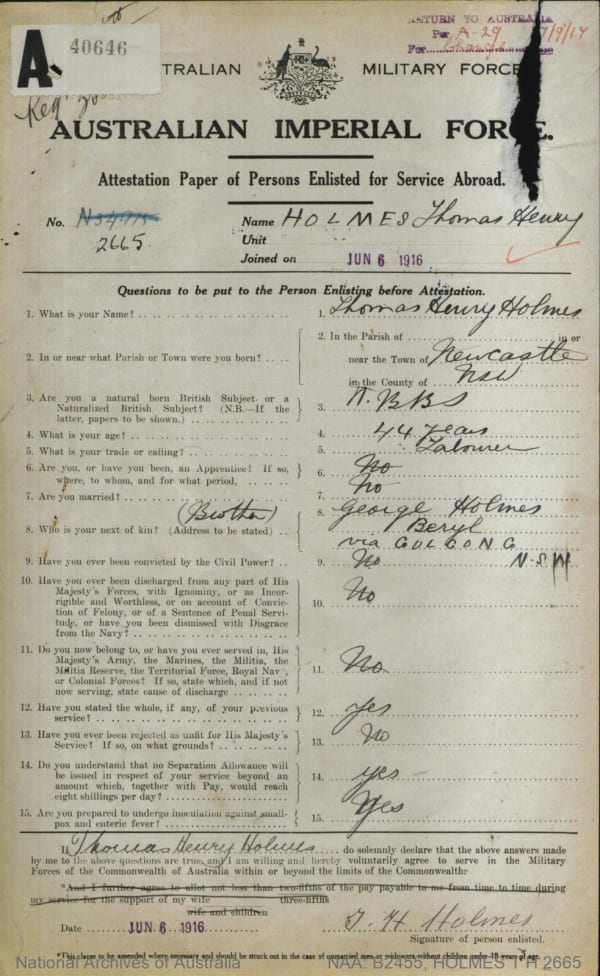 A. 40646
RETURN TO AUSTRALIA
Per A-29 7/9/17
For
AUSTRALIAN MILITARY FORCES
AUSTRALIAN IMPERIAL FORCE.
Attestation Paper of Persons Enlisted for Service Abroad.
No. N34915 Name HOLMES Thomas Henry
2665. Unit
Joined on JUN 6 1916
Questions to be put to the Person Enlisting before Attestation.
1. What is your Name? 1. Thomas Henry Holmes
2. In or near what Parish or Town were you born? 2. In the Parish of in or
near the Town of Newcastle
in the County of NSW
3. Are you a natural born British Subject or a
Naturalized British Subject? (N.B.—If the
latter, papers to be shown.) 3. N. B B S
4. What is your age? 4. 44 years
5. What is your trade or calling? 5. Labourer
6. Are you, or have you been, an Apprentice? If so,
where, to whom, and for what period. 6. No
7. Are you married? 7. No
(Brother)
8. Who is your next of kin? (Address to be stated) 8. George Holmes
Beryl
via GULGONG
N S W
9. Have you ever been convicted by the Civil Power? 9. No
10. Have you ever been discharged from any part of His
Majesty's Forces, with Ignominy, or as Incor-
rigible and Worthless, or on account of Convic-
tion of Felony, or of a Sentence of Penal Servi-
tude, or have you been dismissed with Disgrace
from the Navy? 10. No
11. Do you now belong to, or have you ever served in, His
Majesty's Army, the Marines, the Militia, the
Militia Reserve, the Territorial Force, Royal Nav ,
or Colonial Forces? If so, state which, and if not
now serving, state cause of discharge 11. No
12. Have you stated the whole, if any, of your previous
service? 12. yes
13. Have you ever been rejected as unfit for His Majesty's
Service? If so, on what grounds? 13. No
14. Do you understand that no Separation Allowance will
be issued in respect of your service beyond an
amount which, together with Pay, would reach
eight shillings per day? 14. yes
15. Are you prepared to undergo inoculation against small-
pox and enteric fever? 15. Yes
I, Thomas Henry Holmes do solemnly declare that the above answers made
by me to the above questions are true, and I am willing and hereby voluntarily agree to serve in the Military
Forces of the Commonwealth of Australia within or beyond the limits of the Commonwealth.
*And I further agree to allot not less than two-fifths of the pay payable to me from time to time during
three-fifths
my service for the support of my wife
wife and children
Date JUN 6 1916 T. H Holmes
Signature of person enlisted.
*This clause to be amended where necessary and should be struck out in the case of unmarried men or widowers without children under 18 years of age.
National Archives of Australia NAA: B2455, HOLMES T H 2665